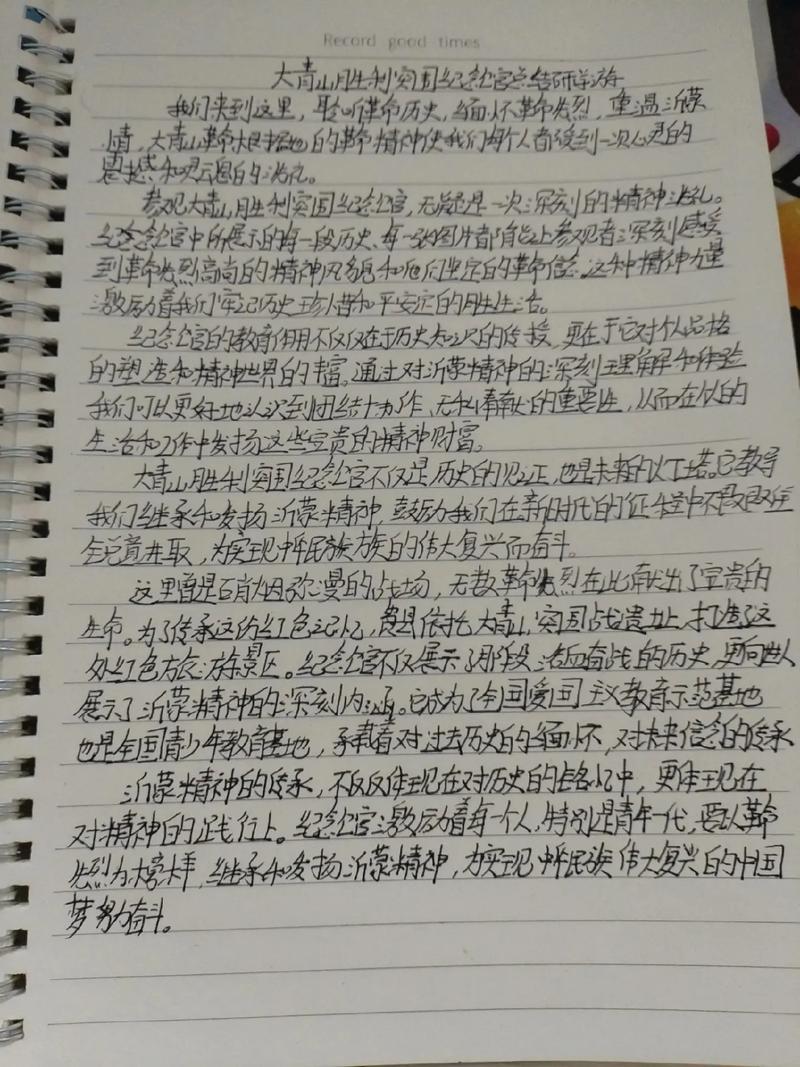 Record good times
大青山胜利突围纪念馆总结研学游
我们来到这里，聆听革命历史，缅怀革命先烈，重温沂蒙
情，大青山革命根据地的革命精神使我们每个人都受到一次心灵的
震撼和灵魂的洗礼。
参观大青山胜利突围纪念馆，无疑是一次深刻的精神洗礼。
纪念馆中所展示的每一段历史、每一张图片都能让参观者深刻感受
到革命先烈高尚的精神风貌和他们坚定的革命信念。这种精神力量
激励着我们牢记历史珍惜和平安定的用生生活。
纪念馆的教育作用不仅仅在于历史知识的传授，更在于它对个人品格
的塑造和精神世界的丰富。通过对沂蒙精神的深刻理解和体验
我们可以更好地认识到团结协作、无私奉献的重要性，从而在以的
生活和工作中发扬这些宝贵的精神财富。
大青山胜利突围纪念馆不仅是历史的见证，也是未来的灯塔。它教导
我们继承和发扬沂蒙精神，鼓励我们在新时代的征程中不畏艰难
锐意进取，为实现中华民族的伟大复兴而奋斗。
这里曾是硝烟弥漫的战场，无数革命先烈在此献出了宝贵的
生命。为了传承这份红色记忆，费县依托大青山突围战遗址，打造了这
处红色旅游景区。纪念馆不仅展示了那段浴血奋战的历史，更向世人
展示了沂蒙精神的深刻内涵。它成为了全国爱国主义教育示范基地
也是全国青少年教育基地，承载着对过去历史的缅怀，对未来信念的传承
沂蒙精神的传承，不仅仅体现在对历史的记忆中，更体现在
对精神的践行上。纪念馆激励着每一个人，特别是青年一代，要以革命
先烈为榜样，继承和发扬沂蒙精神，为实现中华民族伟大复兴的中国
梦努力奋斗。